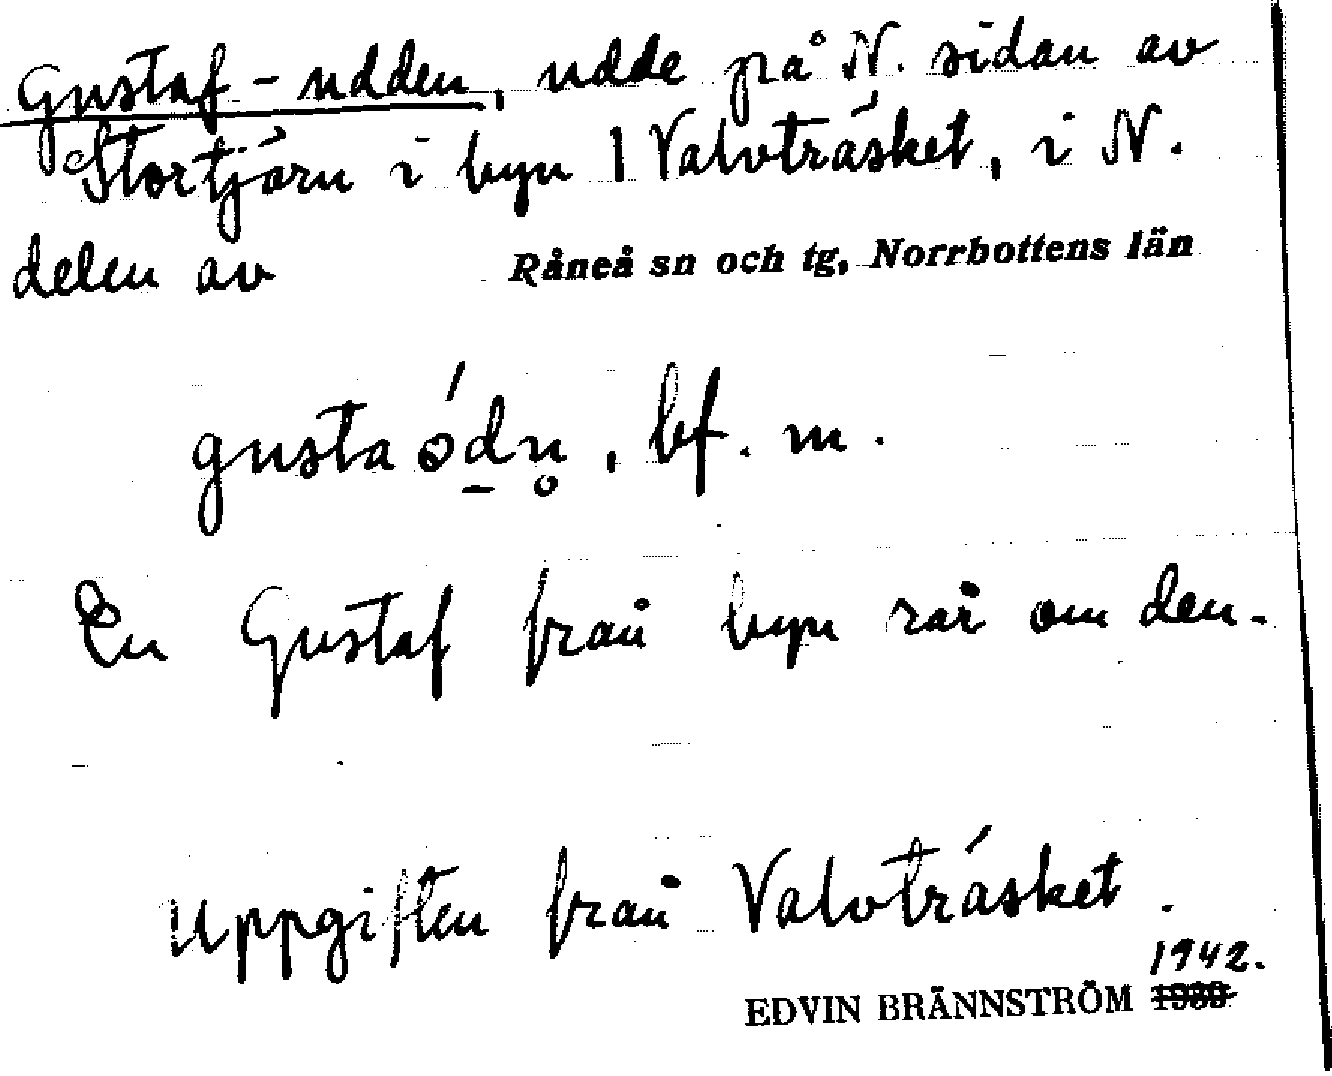 Gustaf-udden, udde på N. sidan av
Stortjärn i byn 1 Valvträsket, i N.
delen av Råneå sn och tg, Norrbottens län
gustaódn̥, bf. m.
En Gustaf från byn rår om den.
Uppgiften från Valvträsket.
1942.
EDVIN BRÄNNSTRÖM